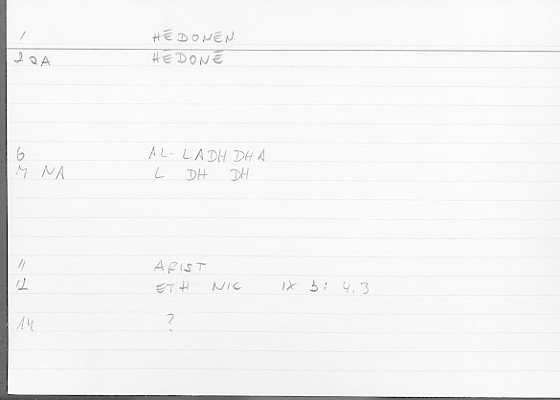 1 HĒDONEN
2 QA HĒDONĒ
6 AL- LADHDHA
M NA L DH DH
11 ARIST
12 ETH NIC IX 3: 4.3
14 ?